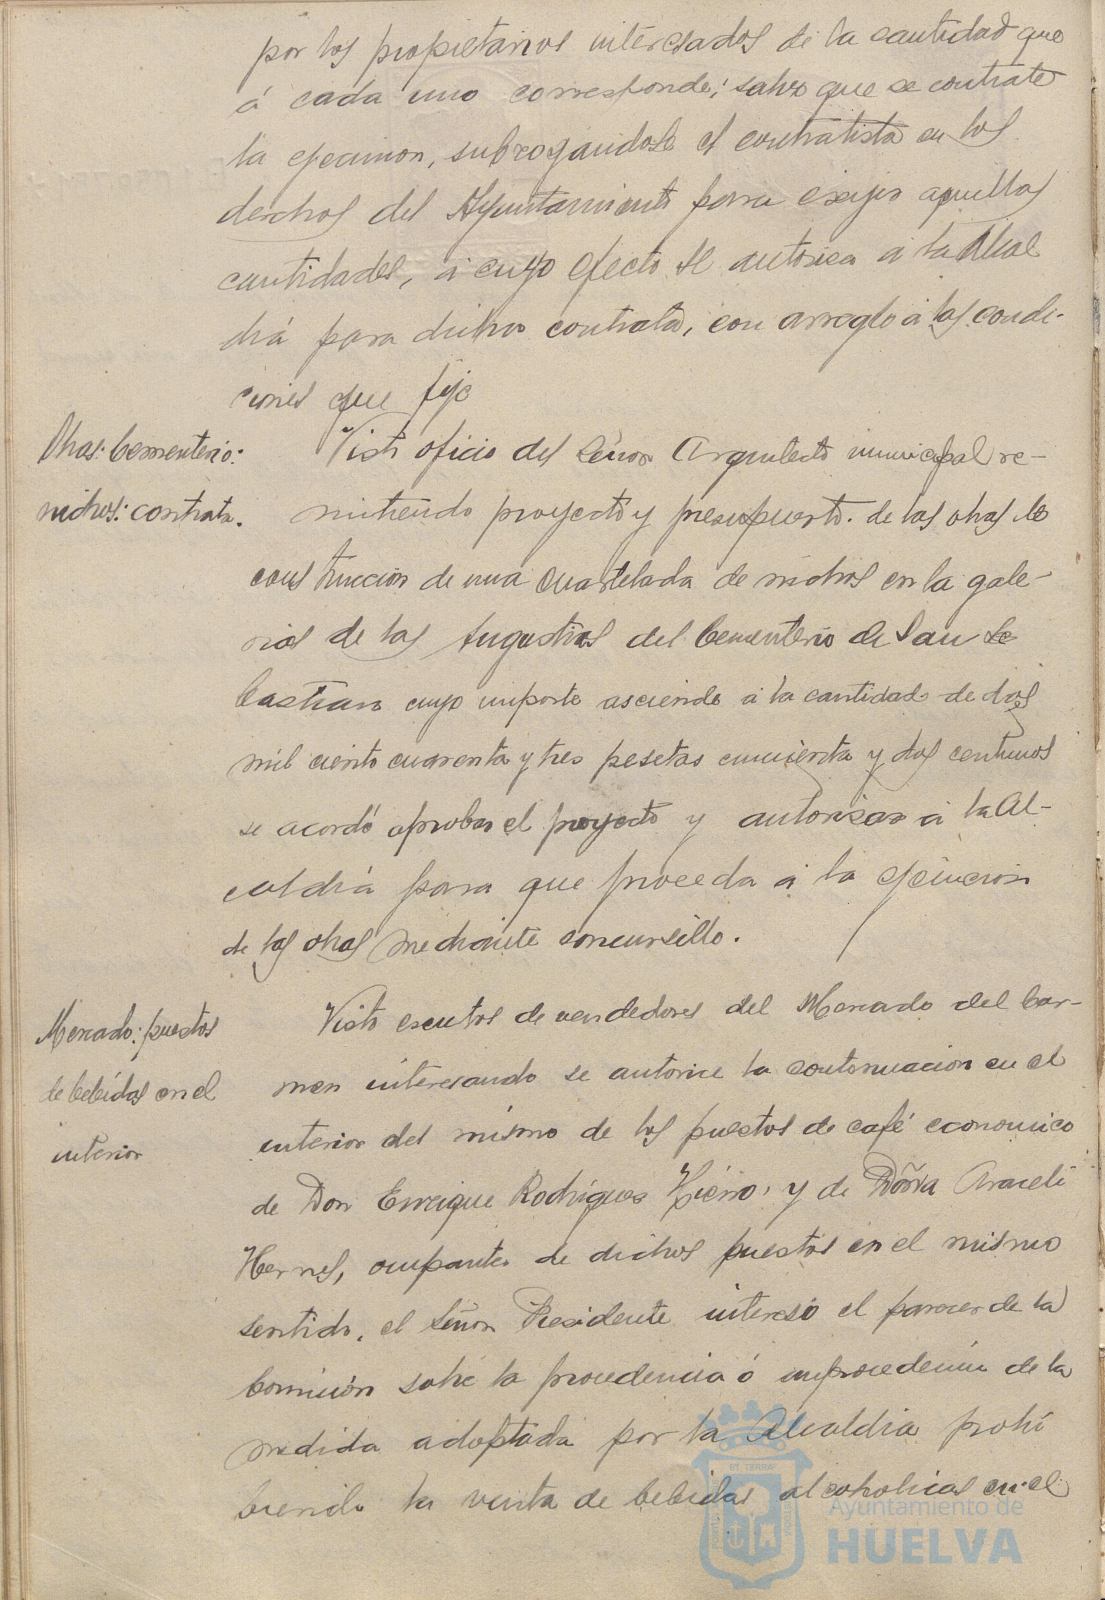 por los propietarios interesados de la cantidad que
á cada uno corresponde; salvo que se contrate
la ejecución, subrogandose el contratista en los
derechos del Ayuntamiento para exigir aquellas
cantidades, á cuyo efecto se autoriza á la Alcal
día para dicho contrato, con arreglo á las condi-
ciones que fije
Obras: Cementerio:
nichos: contrata.
Visto oficio del Señor Arquitecto municipal re-
mitiendo proyecto y presupuesto de las obras de
construccion de una cuartelada de nichos en la gale-
ria de las Angustias del Cementerio de San Se
bastian cuyo importe asciende á la cantidad de dos
mil ciento cuarenta y tres pesetas cincuenta y dos centimos
se acordó aprobar el proyecto y autorizar á la Al-
caldia para que proceda á la ejecucion
de las obras mediante concursillo.
Mercado: puestos
de bebidas en el
interior
Visto escritos de vendedores del Mercado del Car-
men interesando se autorice la continuacion en el
interior del mismo de los puestos de café economico
de Don Enrique Rodríguez y de Doña Araceli
ocupantes de dichos puestos en el mismo
sentido, el Señor Presidente interesó el parecer de la
Comisión sobre la procedencia ó improcedencia de la
medida adoptada por la Alcaldia prohi
biendo la venta de bebidas alcoholicas en el
Ayuntamiento de
HUELVA